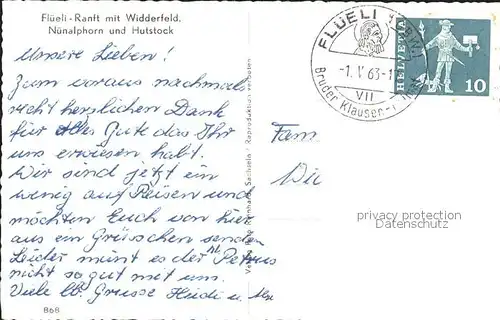 Flüeli - Ranft mit Widderfeld,
Nünalphorn und Hutstock
Unsere Lieben!
Zum voraus nachmals
recht herzlichen Dank
für Alles Gute das Ihr
uns erwiesen habt.
Wir sind jetzt ein
wenig auf Reisen und
möchten Euch von hier
aus ein Grüsschen senden
Leider meint es der Petrus
nicht so gut mit uns.
Viele lb. Grüsse Heidi u.
868
Sachseln Reproduktion verboten
FLÜELI
-1. V 63-1
VII
Bruder Klausen-
HELVETIA
10
Fam
privacy protection
Datenschutz